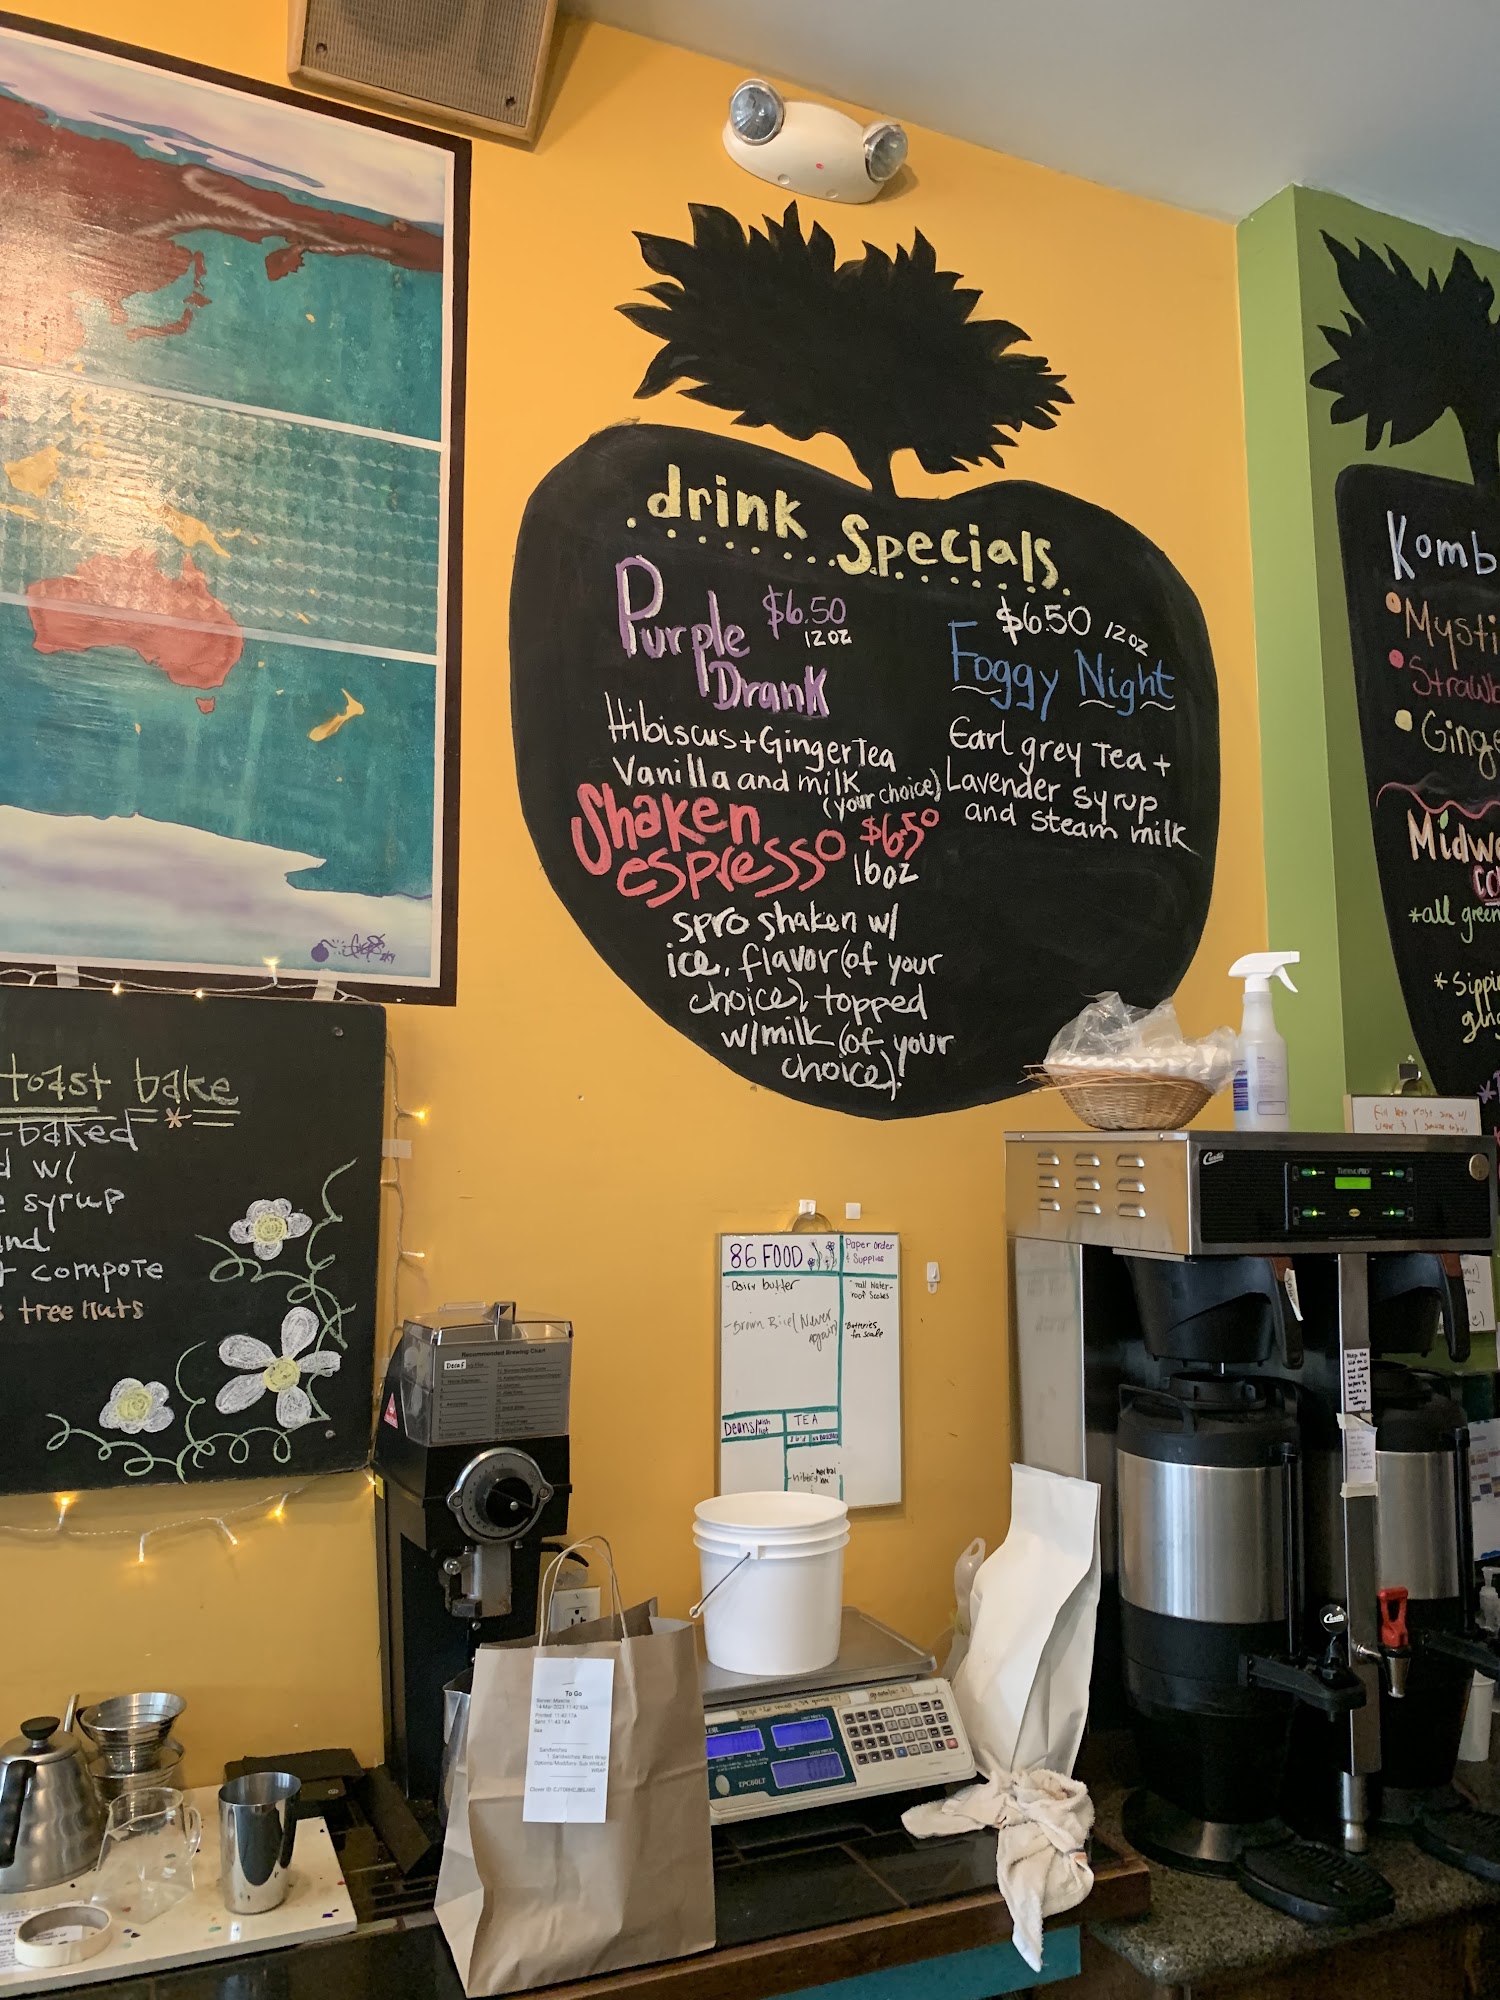 drink Specials
Purple $6.50
12oz
Drank
Hibiscus + Ginger Tea
Vanilla and milk
(your choice)
Shaken
espresso $6.50
16oz
spro shaken w/
ice, flavor (of your
choice), topped
w/milk (of your
choice)!
$6.50 12oz
Foggy Night
Earl grey Tea +
Lavender syrup
and steam milk
Komb
Mysti
Strawb
Ginge
Midwe
co
*all green
*Sippi
ging
toast bake
-baked *
d w/
e syrup
and
t compote
s tree nuts
86 FOOD
- Dairy butter
- Brown Rice (Never
again)
Paper order
& Supplies
Batteries
for scale
TEA
Recommended Brewing Chart
Decaf
To Go
14-Mar-2023
Sandwiches
WRAP
EPC60LT
Curtis
ThermoPro
Curtis